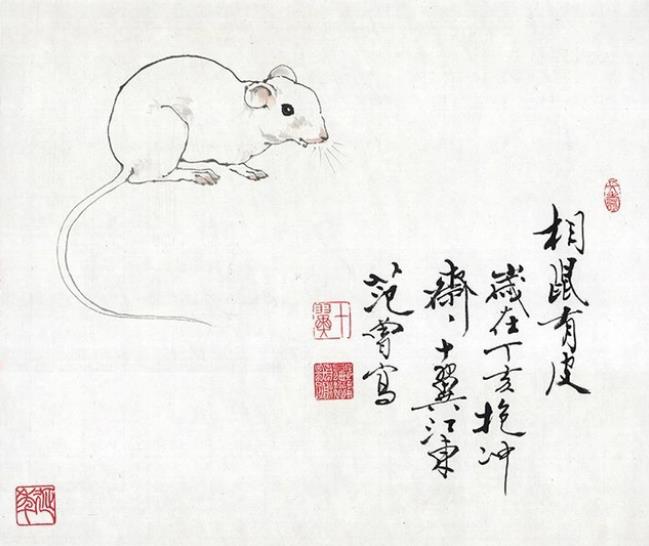 相鼠有皮
歲在丁亥抱冲
齋、十翼江東
范曾寫
十翼